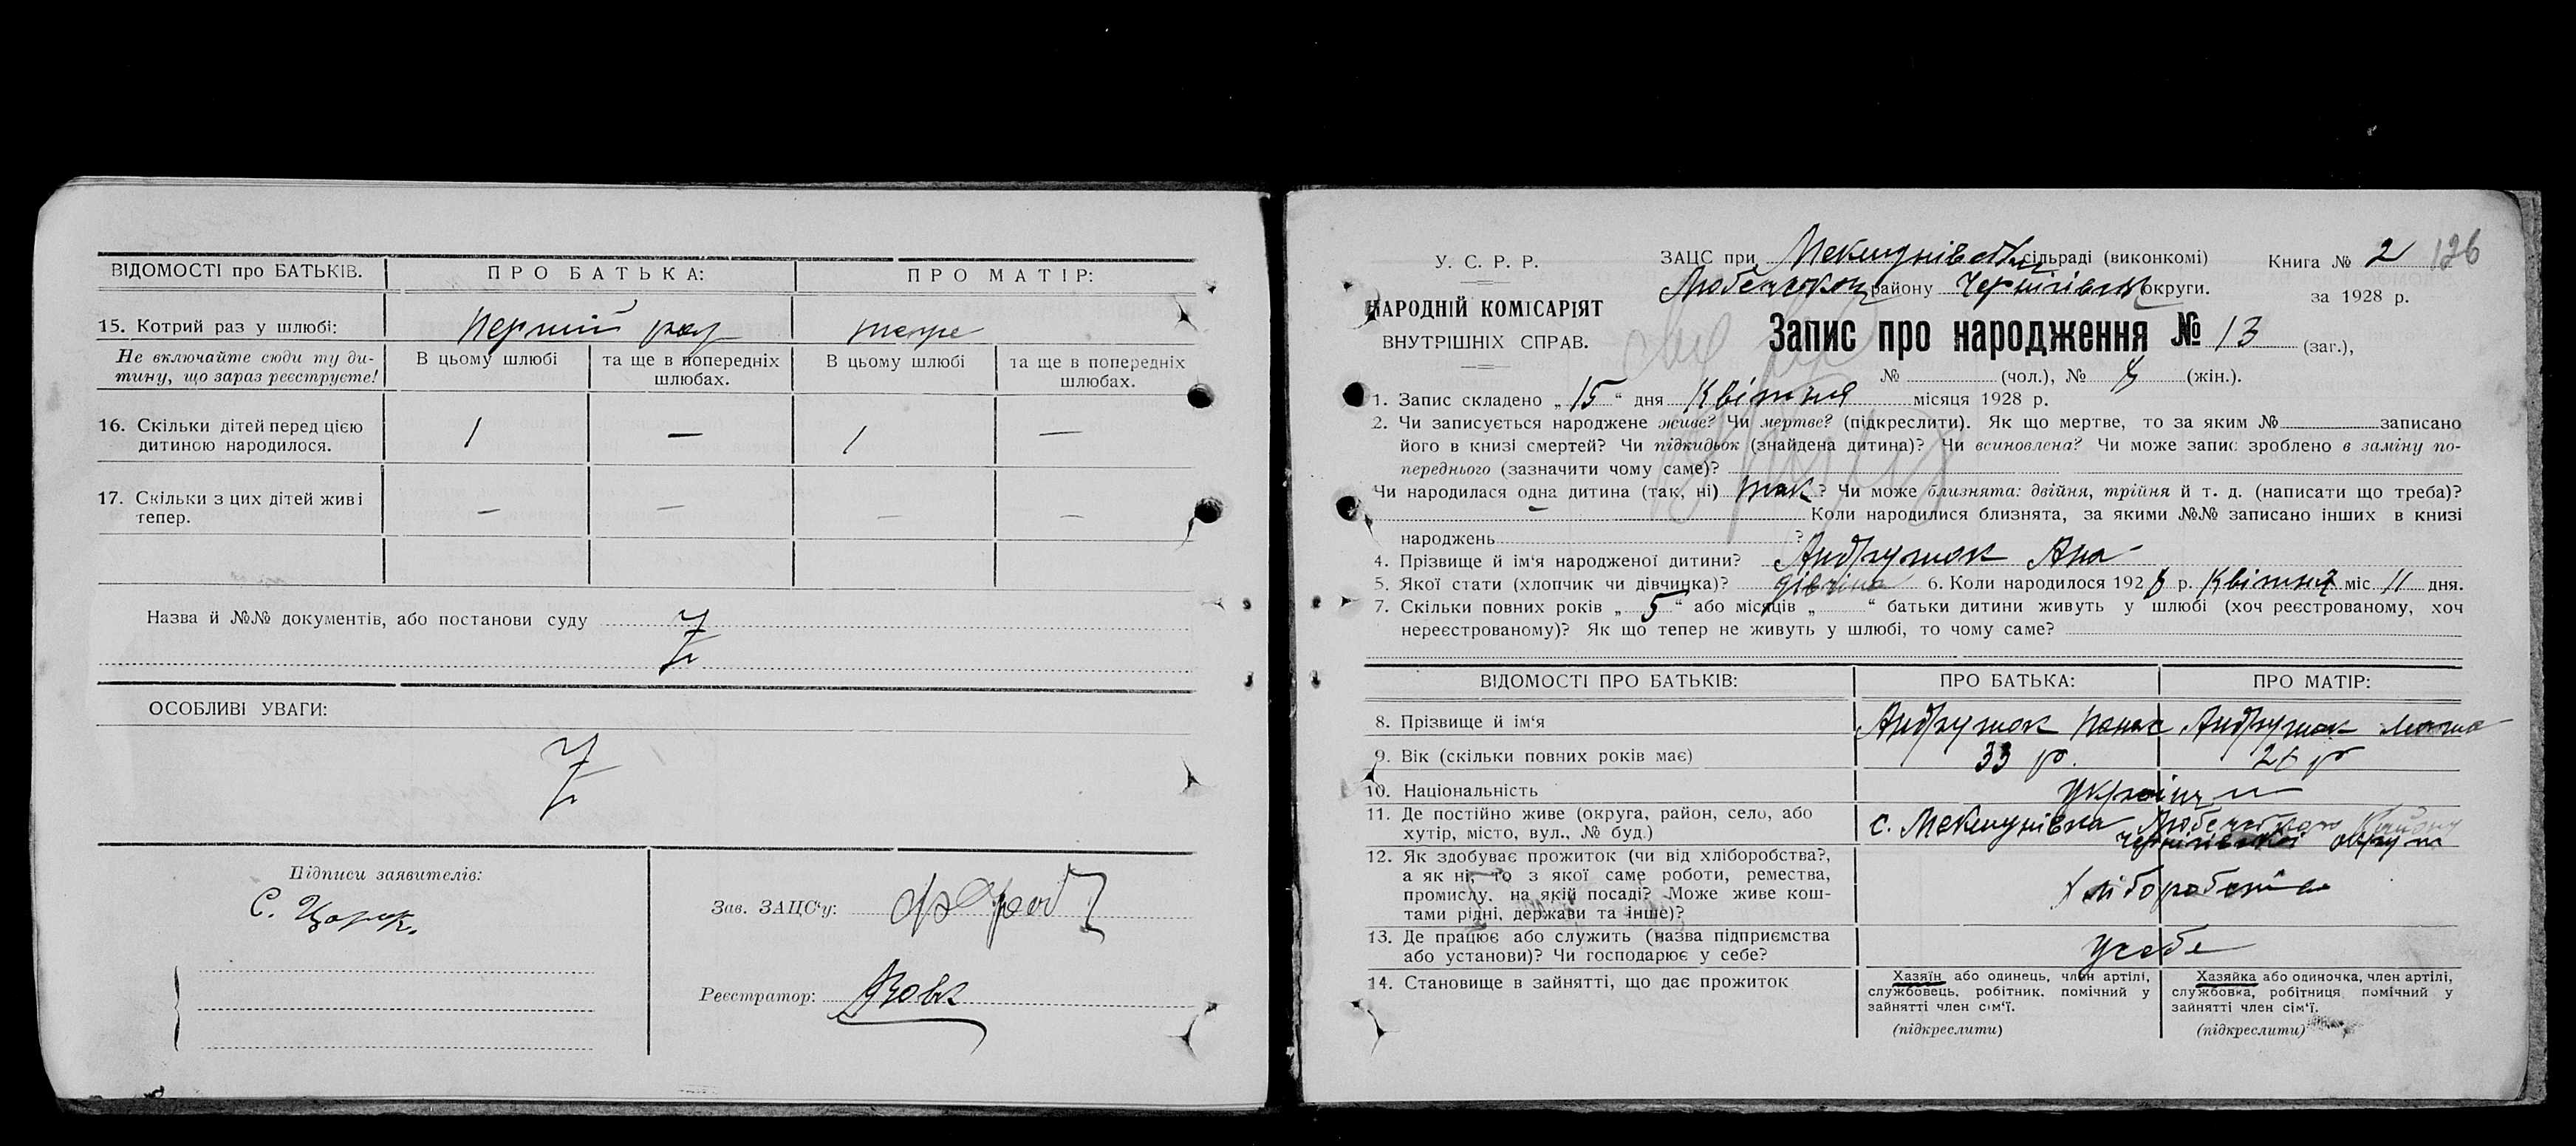 ВІДОМОСТІ про БАТЬКІВ. ПРО БАТЬКА: ПРО МАТІР:
15. Котрий раз у шлюбі: Перший раз
Не включайте сюди ту ди-
тину, що зараз реєструєте!
В цьому шлюбі та ще в попередніх шлюбах. В цьому шлюбі та ще в попередніх шлюбах.
16. Скільки дітей перед цією
дитиною народилося. 1 — 1 —
17. Скільки з цих дітей живі
тепер. — — — —
Назва й №№ документів, або постанови суду
ОСОБЛИВІ УВАГИ:
Підписи заявителів:
С. Царик.
Зав. ЗАЦС'у:
Реєстратор:
У. С. Р. Р.
НАРОДНІЙ КОМІСАРІЯТ
ВНУТРІШНІХ СПРАВ.
ЗАЦС при сільраді (виконкомі)
району округи.
Книга № 2 126
за 1928 р.
Запис про народження № 13 (заг.),
№ (чол.), № 8 (жін.).
1. Запис складено „15“ дня Квітня місяця 1928 р.
2. Чи записується народжене живе? Чи мертве? (підкреслити). Як що мертве, то за яким № записано
його в книзі смертей? Чи підкидьок (знайдена дитина)? Чи всиновлена? Чи може запис зроблено в заміну по-
переднього (зазначити чому саме)?
Чи народилася одна дитина (так, ні) так? Чи може близнята: двійня, трійня й т. д. (написати що треба)?
Коли народилися близнята, за якими №№ записано інших в книзі
народжень ?
4. Прізвище й ім'я народженої дитини? Андрушок Ана
5. Якої стати (хлопчик чи дівчинка)? дівчина 6. Коли народилося 1928 р. Квітня міс. 11 дня.
7. Скільки повних років „5“ або місяців „ “ батьки дитини живуть у шлюбі (хоч реєстрованому, хоч
нереєстрованому)? Як що тепер не живуть у шлюбі, то чому саме?
ВІДОМОСТІ ПРО БАТЬКІВ: ПРО БАТЬКА: ПРО МАТІР:
8. Прізвище й ім'я Андрушок Панас Андрушок
9. Вік (скільки повних років має) 33 р. 26 р
10. Національність українці
11. Де постійно живе (округа, район, село, або
хутір, місто, вул., № буд.) с.
Чернігівської округи
12. Як здобуває прожиток (чи від хліборобства?,
а як ні, то з якої саме роботи, ремества,
промислу, на якій посаді? Може живе кош-
тами рідні, держави та інше)?
13. Де працює або служить (назва підприємства
або установи)? Чи господарює у себе? у себе
14. Становище в зайнятті, що дає прожиток
Хазяїн або одинець, член артілі,
службовець, робітник, помічний у
зайнятті член сім'ї.
(підкреслити)
Хазяйка або одиночка, член артілі,
службовка, робітниця, помічний у
зайнятті член сім'ї.
(підкреслити)